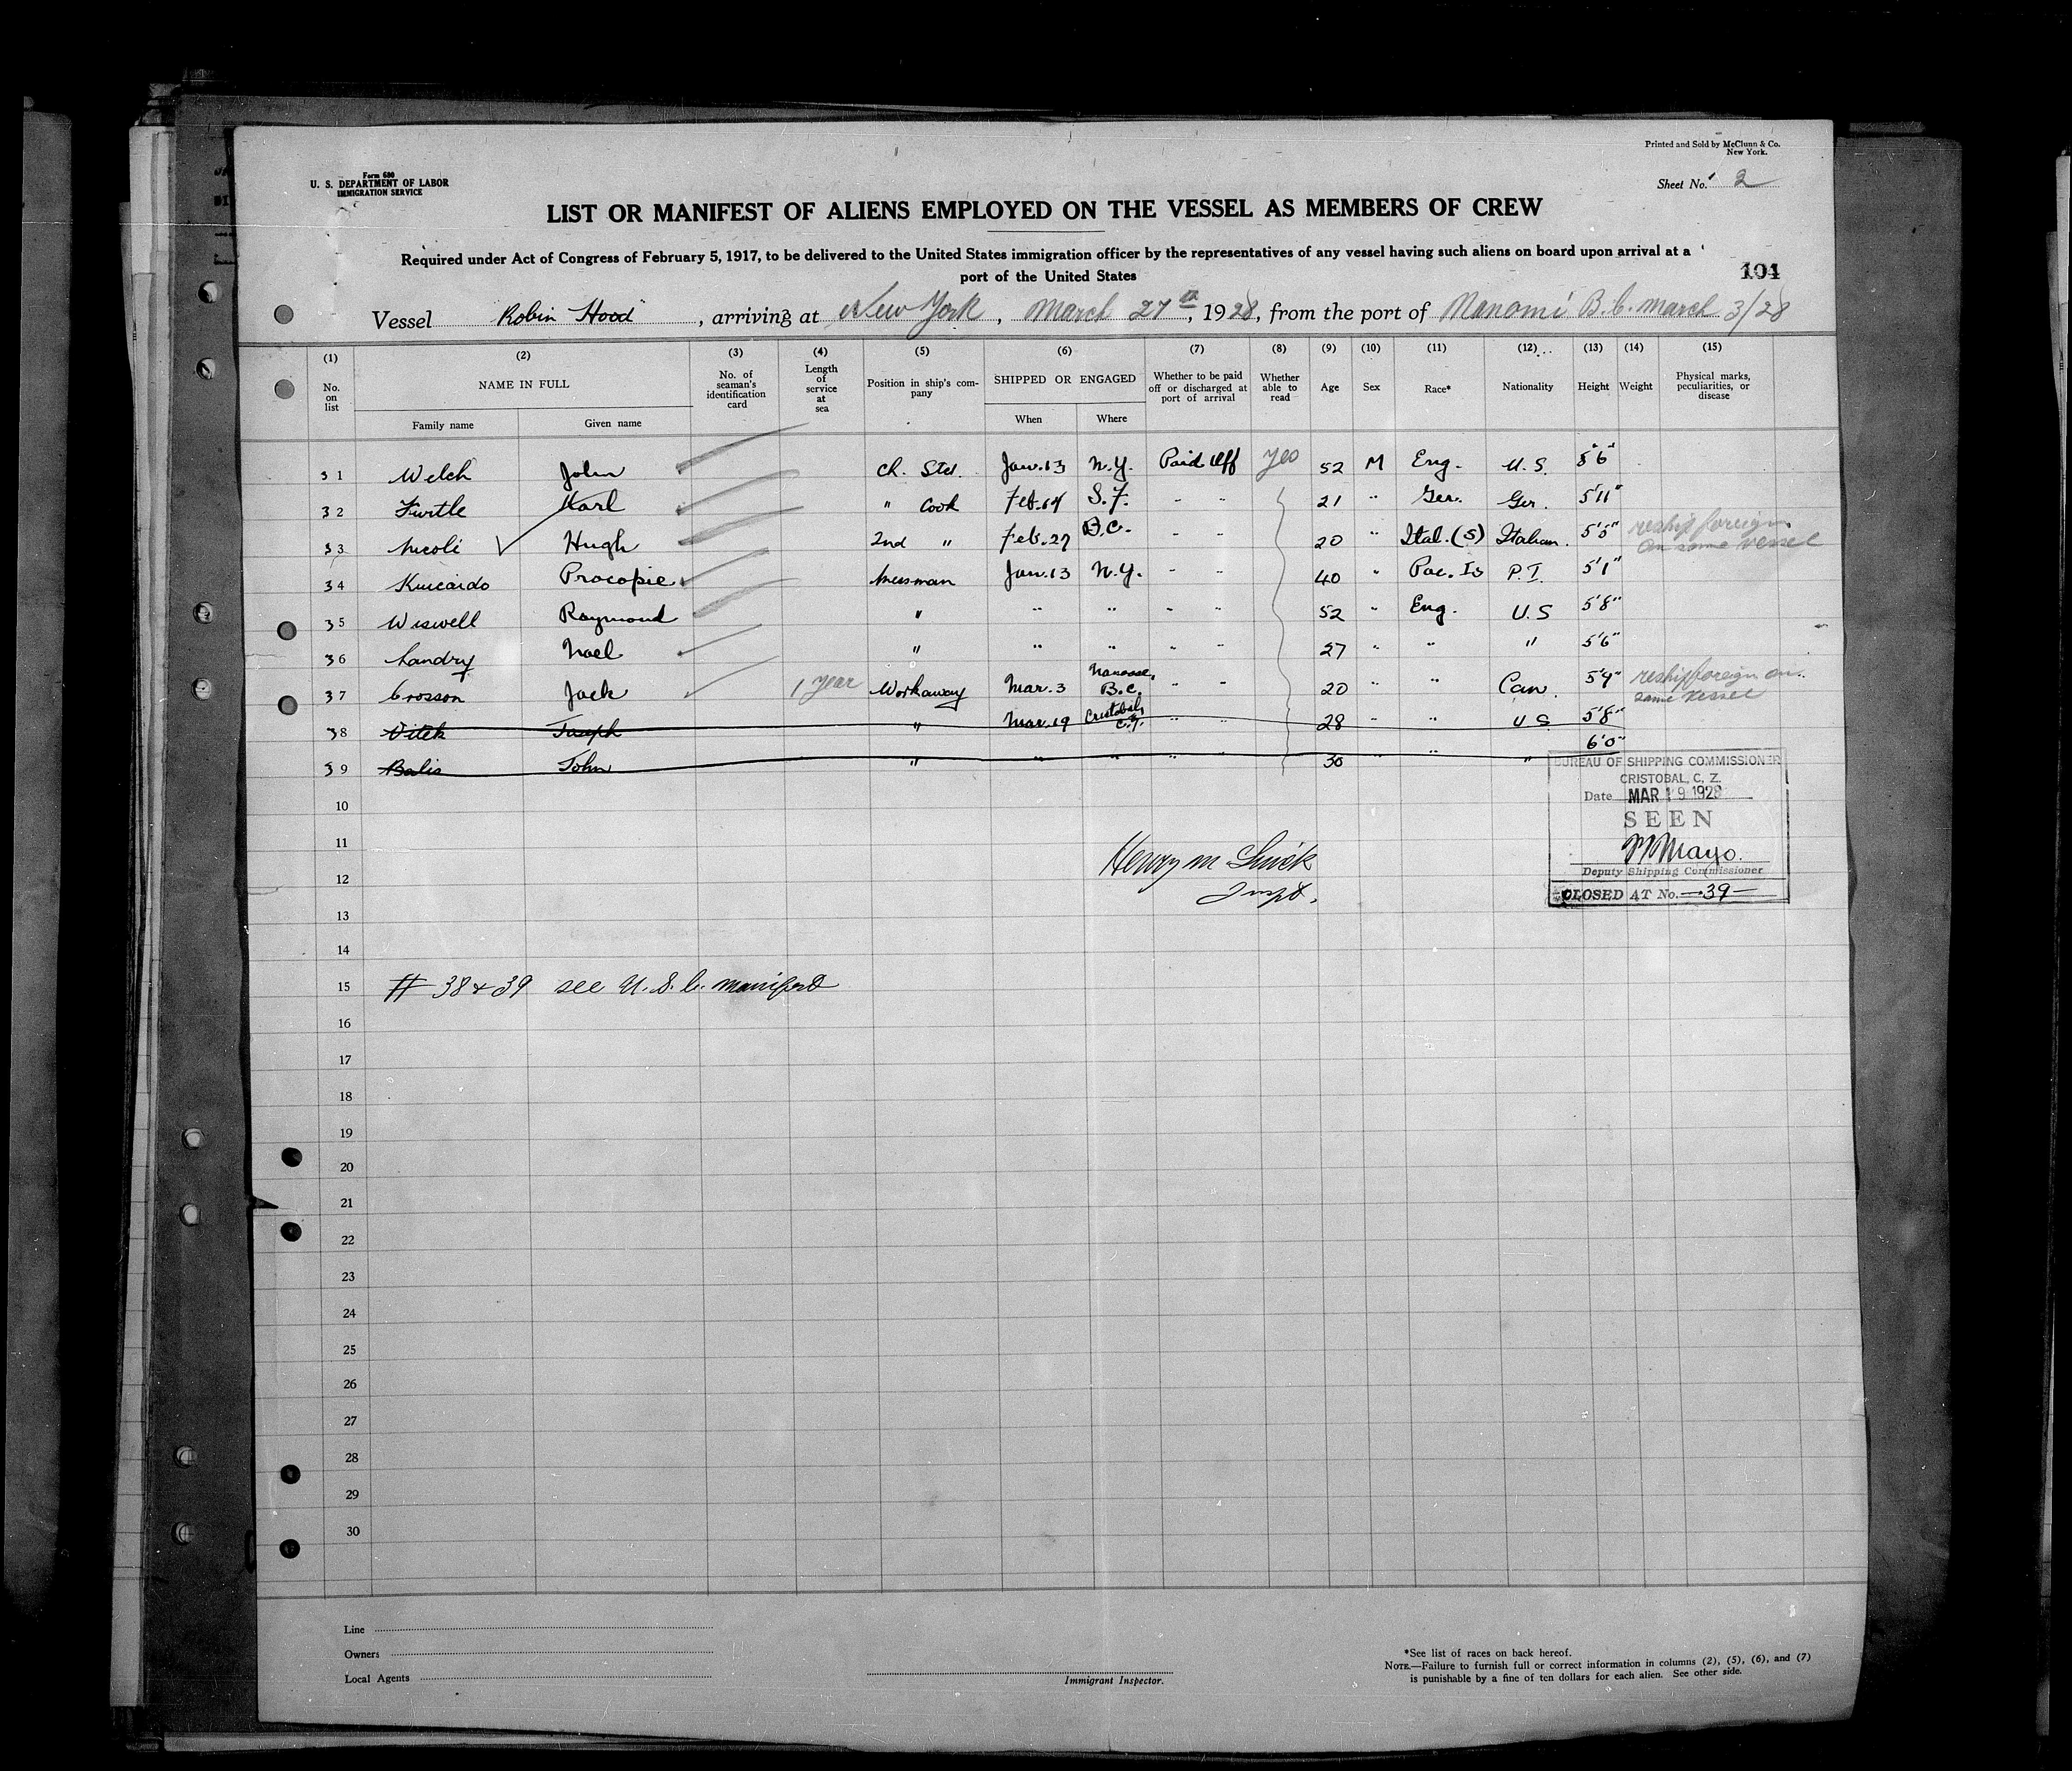 Printed and Sold by McClunn & Co.
New York.
Form 680
U. S. DEPARTMENT OF LABOR
IMMIGRATION SERVICE
Sheet No. 2
LIST OR MANIFEST OF ALIENS EMPLOYED ON THE VESSEL AS MEMBERS OF CREW
Required under Act of Congress of February 5, 1917, to be delivered to the United States immigration officer by the representatives of any vessel having such aliens on board upon arrival at a
port of the United States
104
Vessel Robin Hood, arriving at New York, March 27th, 1928, from the port of B.C. March 3/28
(1) (2) (3) (4) (5) (6) (7) (8) (9) (10) (11) (12) (13) (14) (15)
No. on list NAME IN FULL No. of seaman's identification card Length of service at sea Position in ship's company SHIPPED OR ENGAGED Whether to be paid off or discharged at port of arrival Whether able to read Age Sex Race* Nationality Height Weight Physical marks, peculiarities, or disease
Family name Given name When Where
31 Welch John Ch. Std. Jan. 13 N.Y. Paid Off Yes 52 M Eng. U.S. 5'6"
32 Karl " Cook Feb. S.F. " " 21 " Ger. Ger. 5'11"
33 Nicoli Hugh 2nd " Feb. 27 B.C. " " 20 " Ital. (S) Italian. 5'5" reship foreign
on same vessel
34 Procopie Messman Jan. 13 N.Y. " " 40 " Pac. Is P.I. 5'1"
35 Wiswell Raymond " " " " " 52 " Eng. U.S 5'8"
36 Landry Noel " " " " " 27 " " " 5'6"
37 Crosson Jack 1 year Workaway Mar. 3 Nanoose, B.C. " " 20 " " Can. 5'9" reship foreign on
same vessel
38 Vitek Joseph " Mar. 19 Cristobal, C.Z. " " 28 " " U S 5'8"
39 Balis John " " " " " 30 " " " 6'0"
BUREAU OF SHIPPING COMMISSIONER
CRISTOBAL, C. Z.
Date MAR 19 1928
SEEN
Mayo.
Deputy Shipping Commissioner
CLOSED AT No. —39—
10
11
Henry M
12
Inspt.
13
14
15 # 38 & 39 see U.S.C. manifest
16
17
18
19
20
21
22
23
24
25
26
27
28
29
30
Line
Owners
Local Agents
Immigrant Inspector.
*See list of races on back hereof.
NOTE.—Failure to furnish full or correct information in columns (2), (5), (6), and (7)
is punishable by a fine of ten dollars for each alien. See other side.